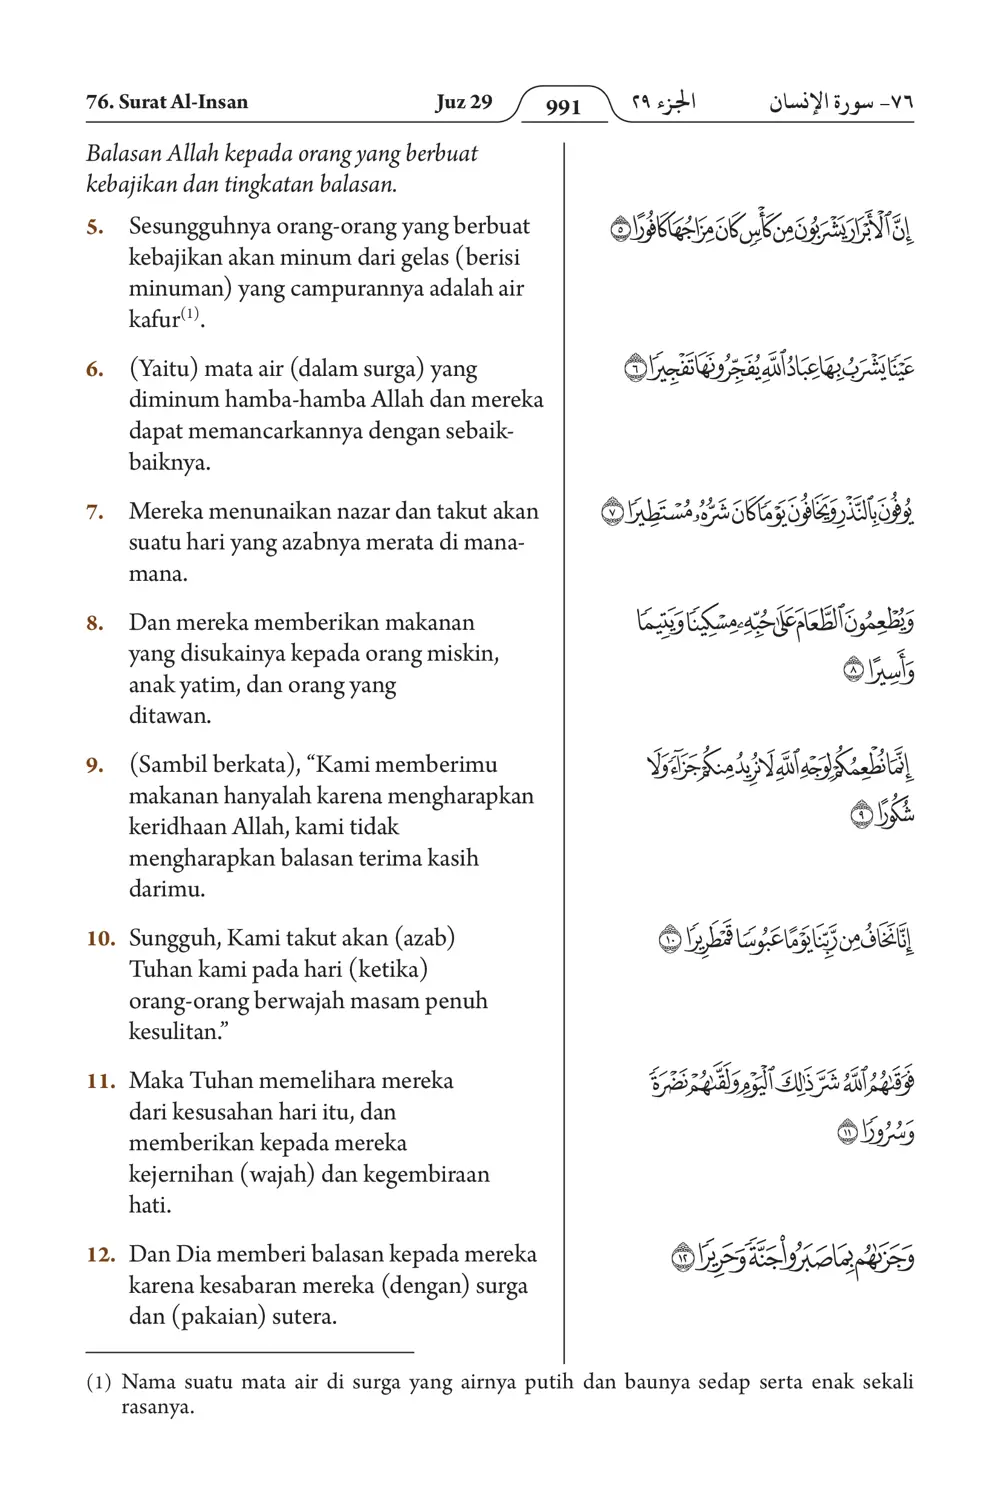 76. Surat Al-Insan
Juz 29
991
الجزء ٢٩
٧٦- سورة الإنسان
Balasan Allah kepada orang yang berbuat
kebajikan dan tingkatan balasan.
5. Sesungguhnya orang-orang yang berbuat
kebajikan akan minum dari gelas (berisi
minuman) yang campurannya adalah air
kafur(1).
إِنَّ ٱلْأَبْرَارَ يَشْرَبُونَ مِن كَأْسٍ كَانَ مِزَاجُهَا كَافُورًا ٥
6. (Yaitu) mata air (dalam surga) yang
diminum hamba-hamba Allah dan mereka
dapat memancarkannya dengan sebaik-
baiknya.
عَيْنًا يَشْرَبُ بِهَا عِبَادُ ٱللَّهِ يُفَجِّرُونَهَا تَفْجِيرًا ٦
7. Mereka menunaikan nazar dan takut akan
suatu hari yang azabnya merata di mana-
mana.
يُوفُونَ بِٱلنَّذْرِ وَيَخَافُونَ يَوْمًا كَانَ شَرُّهُۥ مُسْتَطِيرًا ٧
8. Dan mereka memberikan makanan
yang disukainya kepada orang miskin,
anak yatim, dan orang yang
ditawan.
وَيُطْعِمُونَ ٱلطَّعَامَ عَلَىٰ حُبِّهِۦ مِسْكِينًا وَيَتِيمًا
وَأَسِيرًا ٨
9. (Sambil berkata), “Kami memberimu
makanan hanyalah karena mengharapkan
keridhaan Allah, kami tidak
mengharapkan balasan terima kasih
darimu.
إِنَّمَا نُطْعِمُكُمْ لِوَجْهِ ٱللَّهِ لَا نُرِيدُ مِنكُمْ جَزَآءً وَلَا
شُكُورًا ٩
10. Sungguh, Kami takut akan (azab)
Tuhan kami pada hari (ketika)
orang-orang berwajah masam penuh
kesulitan.”
إِنَّا نَخَافُ مِن رَّبِّنَا يَوْمًا عَبُوسًا قَمْطَرِيرًا ١٠
11. Maka Tuhan memelihara mereka
dari kesusahan hari itu, dan
memberikan kepada mereka
kejernihan (wajah) dan kegembiraan
hati.
فَوَقَىٰهُمُ ٱللَّهُ شَرَّ ذَٰلِكَ ٱلْيَوْمِ وَلَقَّىٰهُمْ نَضْرَةً
وَسُرُورًا ١١
12. Dan Dia memberi balasan kepada mereka
karena kesabaran mereka (dengan) surga
dan (pakaian) sutera.
وَجَزَىٰهُم بِمَا صَبَرُوا۟ جَنَّةً وَحَرِيرًا ١٢
(1) Nama suatu mata air di surga yang airnya putih dan baunya sedap serta enak sekali
rasanya.